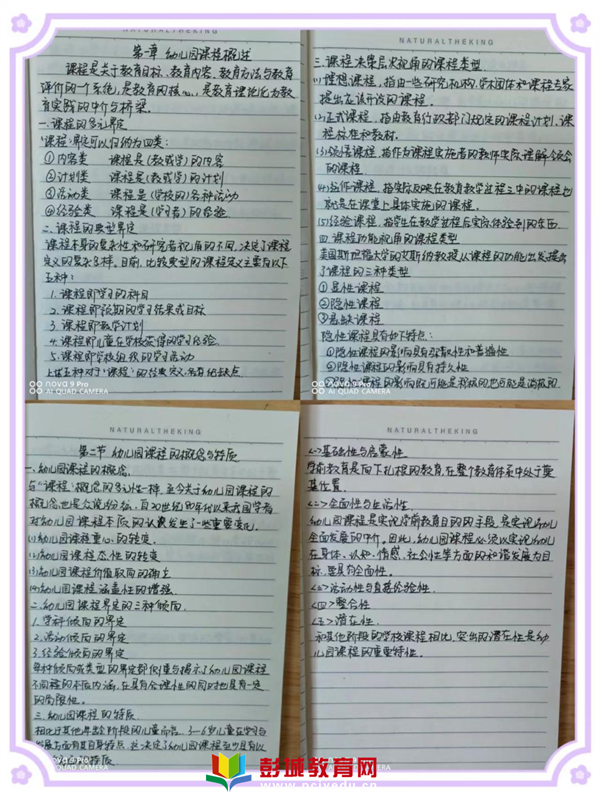 NATURALTHEKING
第一章 幼儿园课程概述
课程是关于教育目标、教育内容、教育方法与教育
评价的一个系统,是教育的核心,是教育理论化为教
育实践的中介与桥梁。
一.课程的多元界定
"课程"界定可以归纳为四类:
①内容类 课程是(教或学)的内容
②计划类 课程是(教或学)的计划
③活动类 课程是(学校的)各种活动
④经验类 课程是(学习者)的经验
二.课程的典型界定
课程本身的复杂性和研究者视角的不同,决定了课程
定义的复杂多样。目前,比较典型的课程定义主要有以下
五种:
1.课程即学习的科目
2.课程即预期的学习结果或目标
3.课程即教学计划
4.课程即儿童在学校获得的学习经验
5.课程即学校组织的学习活动
上述五种对"课程"的经典定义,各有优缺点
nova 9 Pro
AI QUAD CAMERA
NATURALTHEKING
三.课程决策层次视角的课程类型
(1)理想课程,指由一些研究机构、学术团体和课程专家
提出应该开设的课程。
(2)正式课程,指由教育行政部门规定的课程计划、课
程标准和教材。
(3)领悟课程,指作为课程实施者的教师实际理解领会
的课程
(4)运作课程,指实际反映在教育教学过程之中的课程也
就是在课堂上具体实施的课程。
(5)经验课程,指学生在教学过程后实际体验到的东西
四.课程功能视角的课程类型
美国斯坦福大学的艾斯纳教授从课程的功能出发提出
了课程的三种类型
①显性课程
②隐性课程
③悬缺课程
隐性课程具有如下特点:
①隐性课程的影响具有弥散性和普遍性
②隐性课程的影响具有持久性
课程的影响既可能是积极的也可能是消极的
nova 9 Pro
AI QUAD CAMERA
NATURALTHEKING
第二节 幼儿园课程的概念与特质
一.幼儿园课程的概念
与"课程"概念的多元性一样,至今关于幼儿园课程的
概念也是众说纷纭,自20世纪80年代以来我国学者
对幼儿园课程本质的认识发生了一些重要变化。
(1)幼儿园课程重心的转变、
(2)幼儿园课程态性的转变
(3)幼儿园课程价值取向的确立
(4)幼儿园课程涵盖性的增强
二.幼儿园课程界定的三种倾向
1.学科倾向的界定
2.活动倾向的界定
3.经验倾向的界定
每种倾向或类型的界定都侧重与揭示了幼儿园课程
不同程的本质内涵,在具有合理性的同时也具有一定
的局限性。
三.幼儿园课程的特质
相比于其他年龄阶段的儿童而言,3-6岁儿童在学习与
发展方面有其自身特点,这决定了幼儿园课程至少具有以
特质
AI QUAD CAMERA
NATURALTHEKING
<一>基础性与启蒙性
学前教育是向下扎根的教育,在整个教育体系中处于奠
基位置。
<二>全面性与生活性
幼儿园课程是实现学前教育目的的手段,是实现幼儿
全面发展的中介。因此,幼儿园课程必须以实现幼儿
在身体、认知、情感、社会性等方面的和谐发展为目
标,要具有全面性。
<三>活动性与直接经验性
<四>整合性
<五>潜在性
和其他阶段的学校课程相比,突出的潜在性是幼
儿园课程的重要特性。
彭城教育网
www.pcjyedu.cn